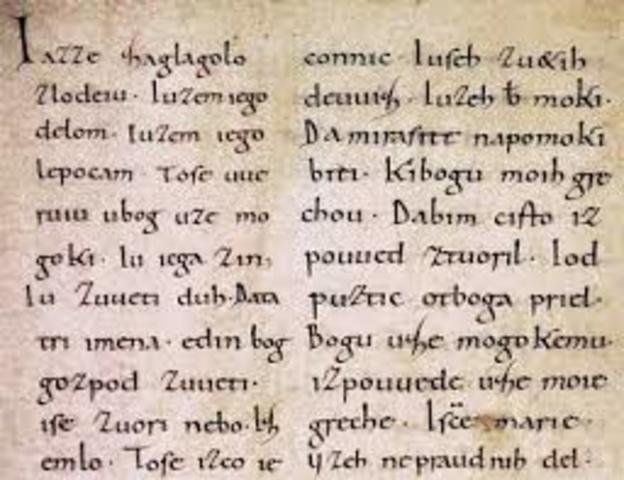 Iazze zaglagolo
zlodeiu. Iuzem iego
delom. Iuzem iego
lepocam. Tose uue
ruiu ubog uze mo
goki. Iu iega zin.
Iu zuueti duh. Data
tri imena. edin bog
gozpod zuueti.
ise zuori nebo. Iz
emlo. Tose izco ie
connic. Iuseh zu&ih
deuuiz. Iuzeh moki.
Da mirasite napomoki
biti. Kibogu moih gre
chou. Dabim cisto iz
pouued ztuoril. Iod
puztic otboga priel.
Bogu uze mogokemu.
izpouuede uze moie
greche. Isce marie.
uzeh nepraudnih del.